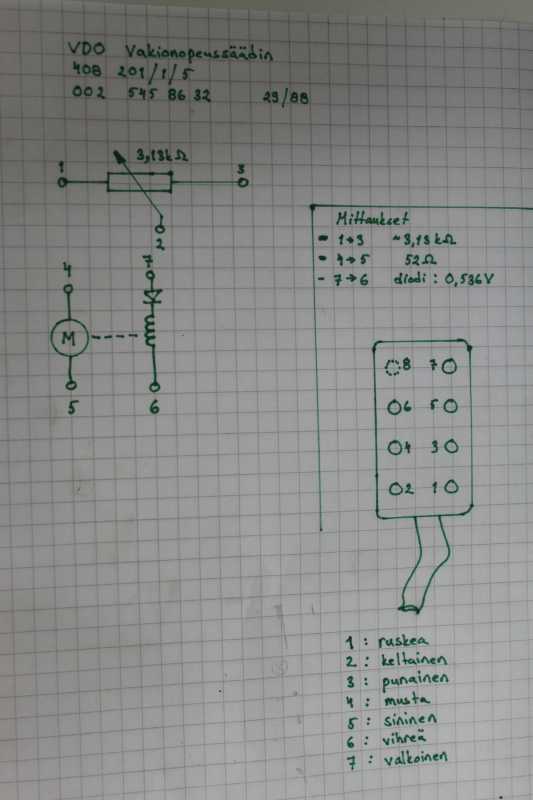 VDO Vakionopeussäädin
408 201/1/5
002 545 86 32 29/88
3,13kΩ
1 3
2
4 7
M
5 6
Mittaukset
- 1→3 ~3,13 kΩ
- 4→5 52Ω
- 7→6 diodi : 0,536V
8 7
6 5
4 3
2 1
1 : ruskea
2 : keltainen
3 : punainen
4 : musta
5 : sininen
6 : vihreä
7 : valkoinen